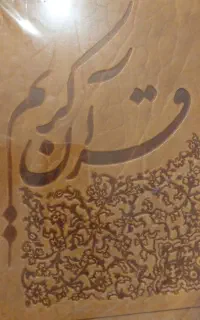 قرآن کریم